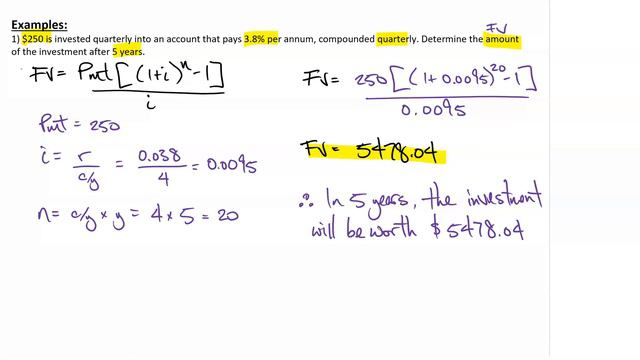 Examples:
FV
1) $250 is invested quarterly into an account that pays 3.8% per annum, compounded quarterly. Determine the amount
of the investment after 5 years.
FV = Pmt[(1+i)^n - 1] / i
Pmt = 250
i = r / c/y = 0.038 / 4 = 0.0095
n = c/y × y = 4 × 5 = 20
FV = 250[(1+0.0095)^20 - 1] / 0.0095
FV = 5478.04
∴ In 5 years, the investment
will be worth $5478.04